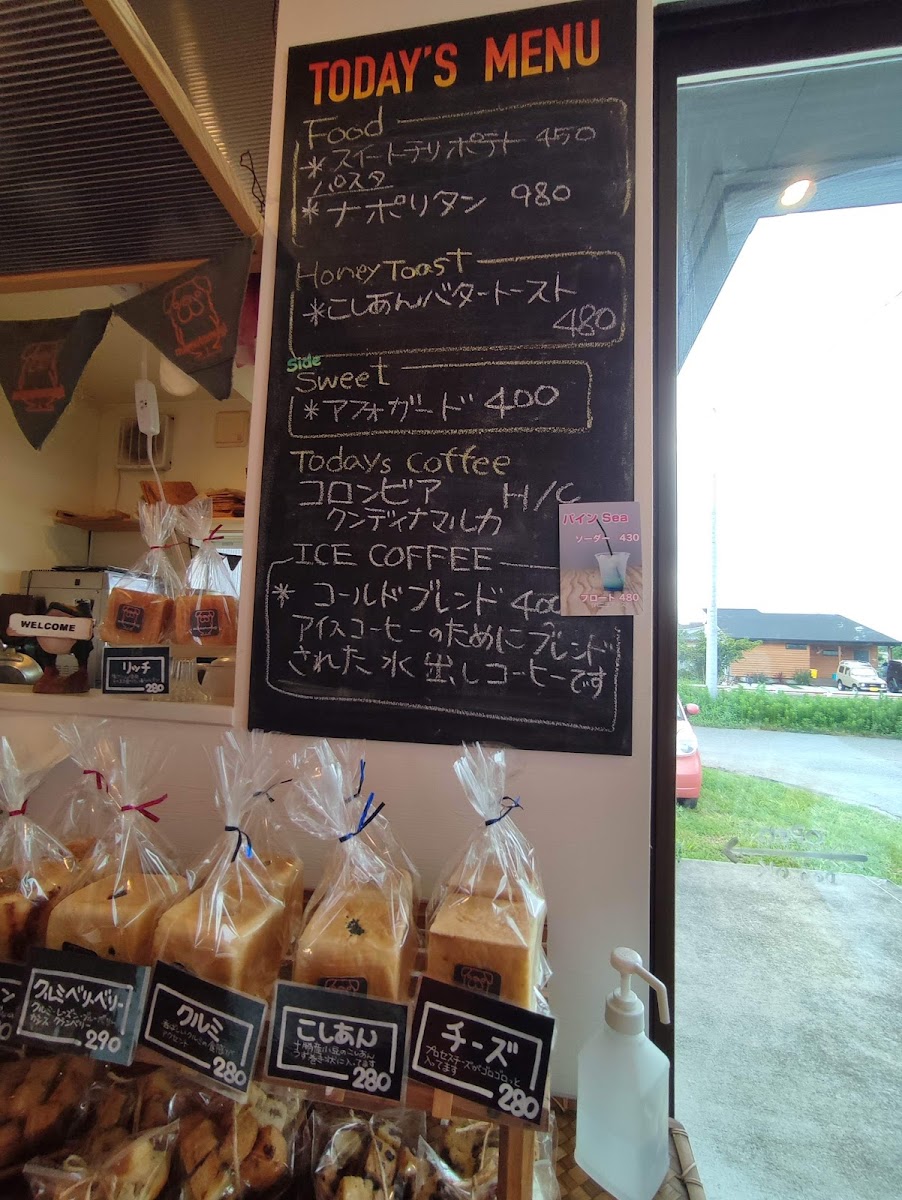 TODAY'S MENU
Food
* スイートテリポテト 450
パスタ
* ナポリタン 980
Honey Toast
* こしあんバタートースト
480
Side
Sweet
* アフォガード 400
Todays Coffee
コロンビア H/C
クンディナマルカ
ICE COFFEE
* コールドブレンド 400
アイスコーヒーのためにブレンド
された水出しコーヒーです
パイン Sea
ソーダー 430
フロート 480
WELCOME
リッチ
280
ン
クルミベリーベリー
290
クルミ
280
こしあん
十勝産小豆のこしあん
うず巻き状に入ってます
280
チーズ
プロセスチーズがゴロゴロっと
入ってます
280